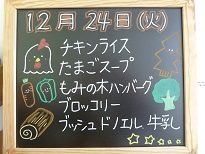 12月24日(火)
チキンライス
たまごスープ
もみの木ハンバーグ
ブロッコリー
ブッシュドノエル、牛乳